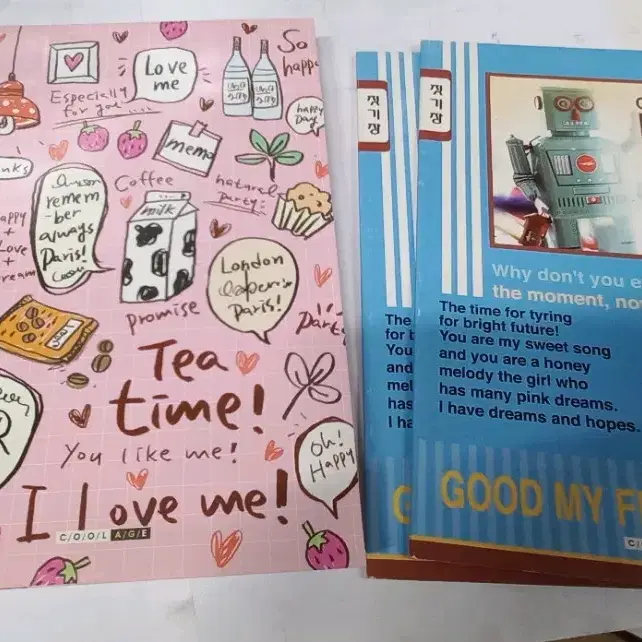 So
happ
Love
me
Especially
for you
happy
Day
memo
Coffee
natural
party:
milk
remem
-ber
always
Paris!
London
Paris!
promise
Party
Tea
time!
You like me!
Oh!
Happy
I love me!
C/O/O/L A/G/E
첫기장
첫기장
Why don't you e
the moment, no
The time for tyring
for bright future!
You are my sweet song
and you are a honey
melody the girl who
has many pink dreams.
I have dreams and hopes.
GOOD MY F
The
for b
You
and
mel
has
I ha
G